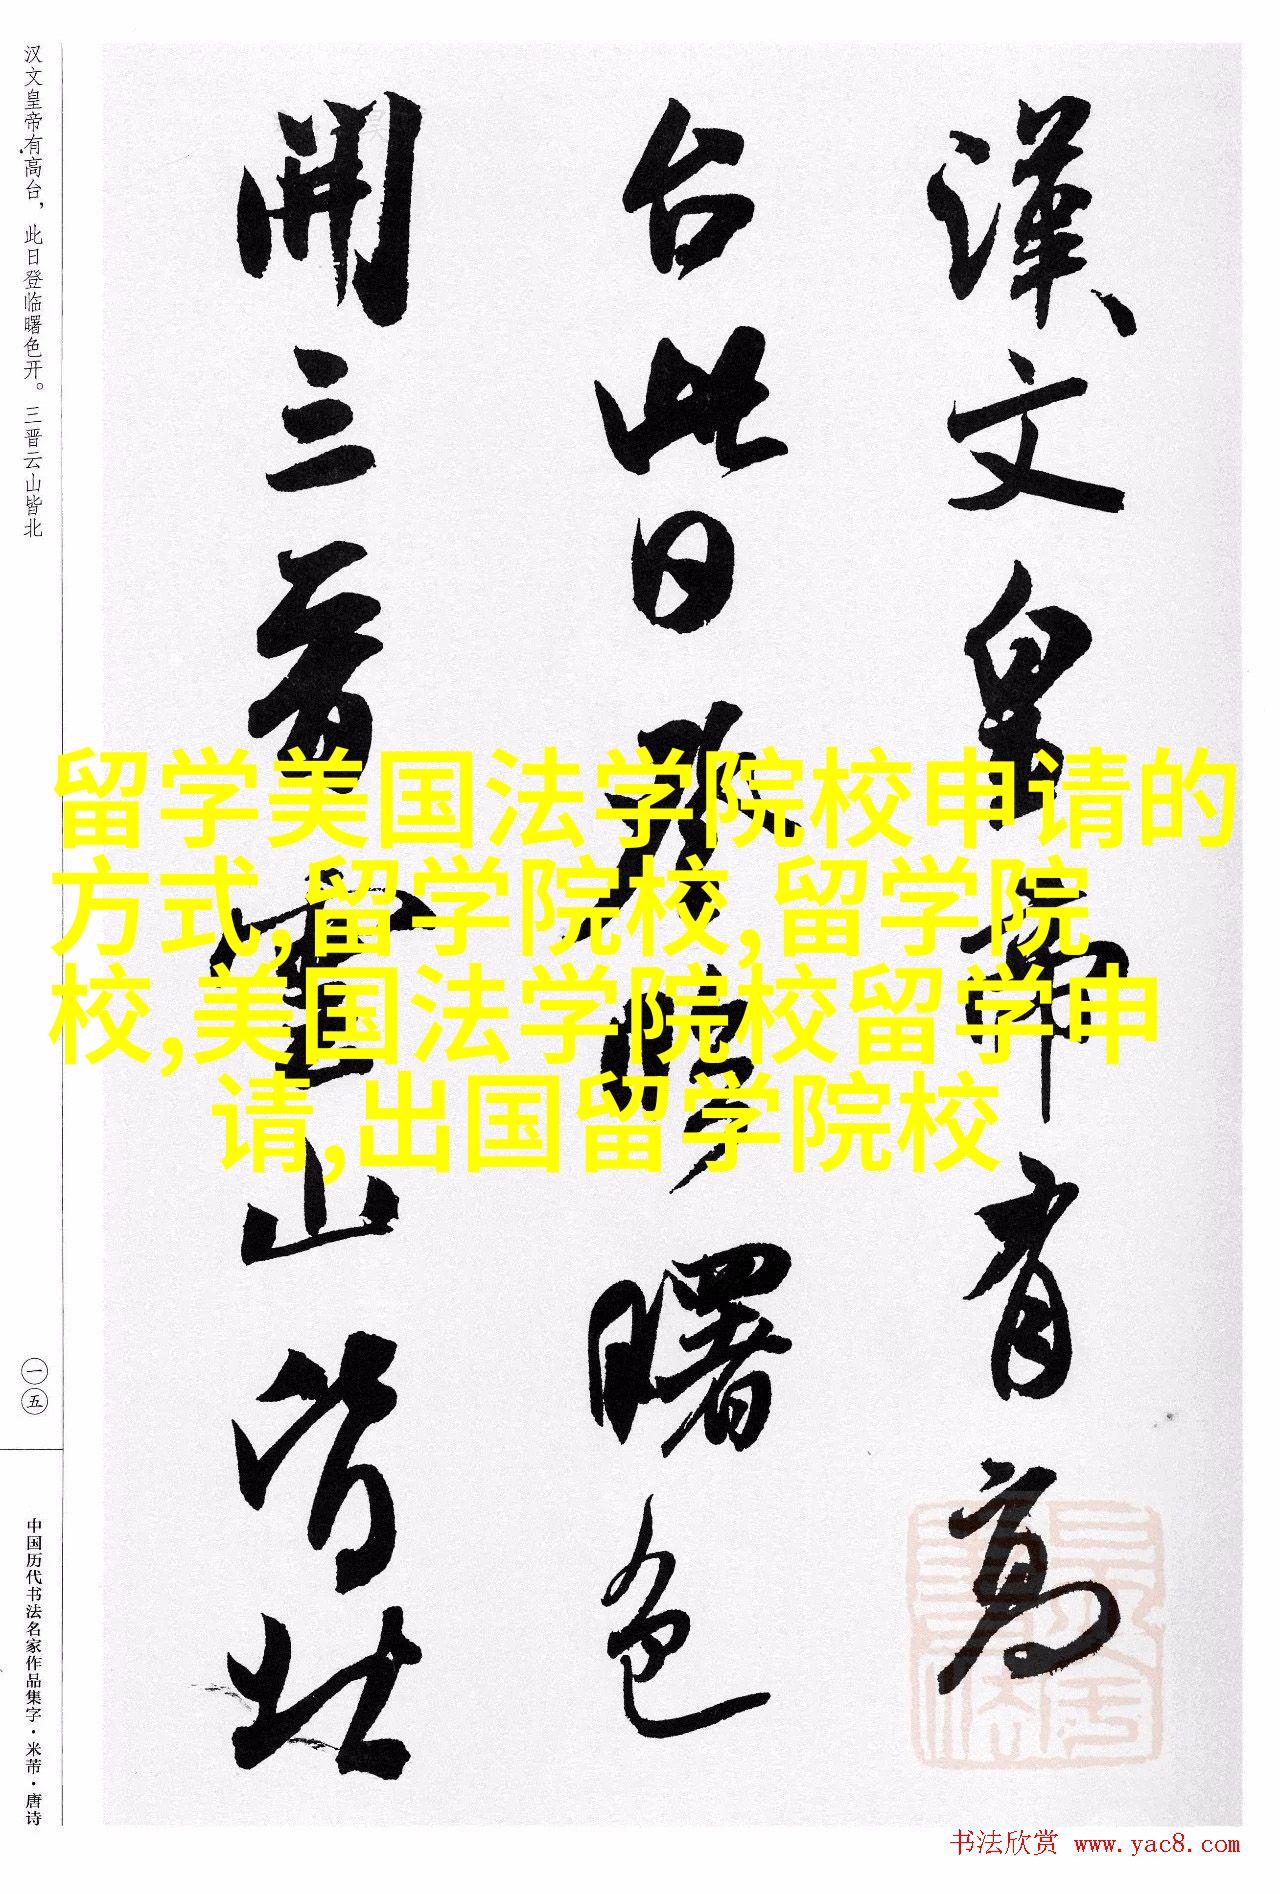 漢文皇帝有高
台此日登臨曙色
開三晉雲山皆北
汉文皇帝有高台，此日登临曙色开。三晋云山皆北
一五
中国历代书法名家作品集字·米芾·唐诗
留学美国法学院校申请的
方式,留学院校,留学院
校,美国法学院校留学申
请,出国留学院校
书法欣赏 www.yac8.com